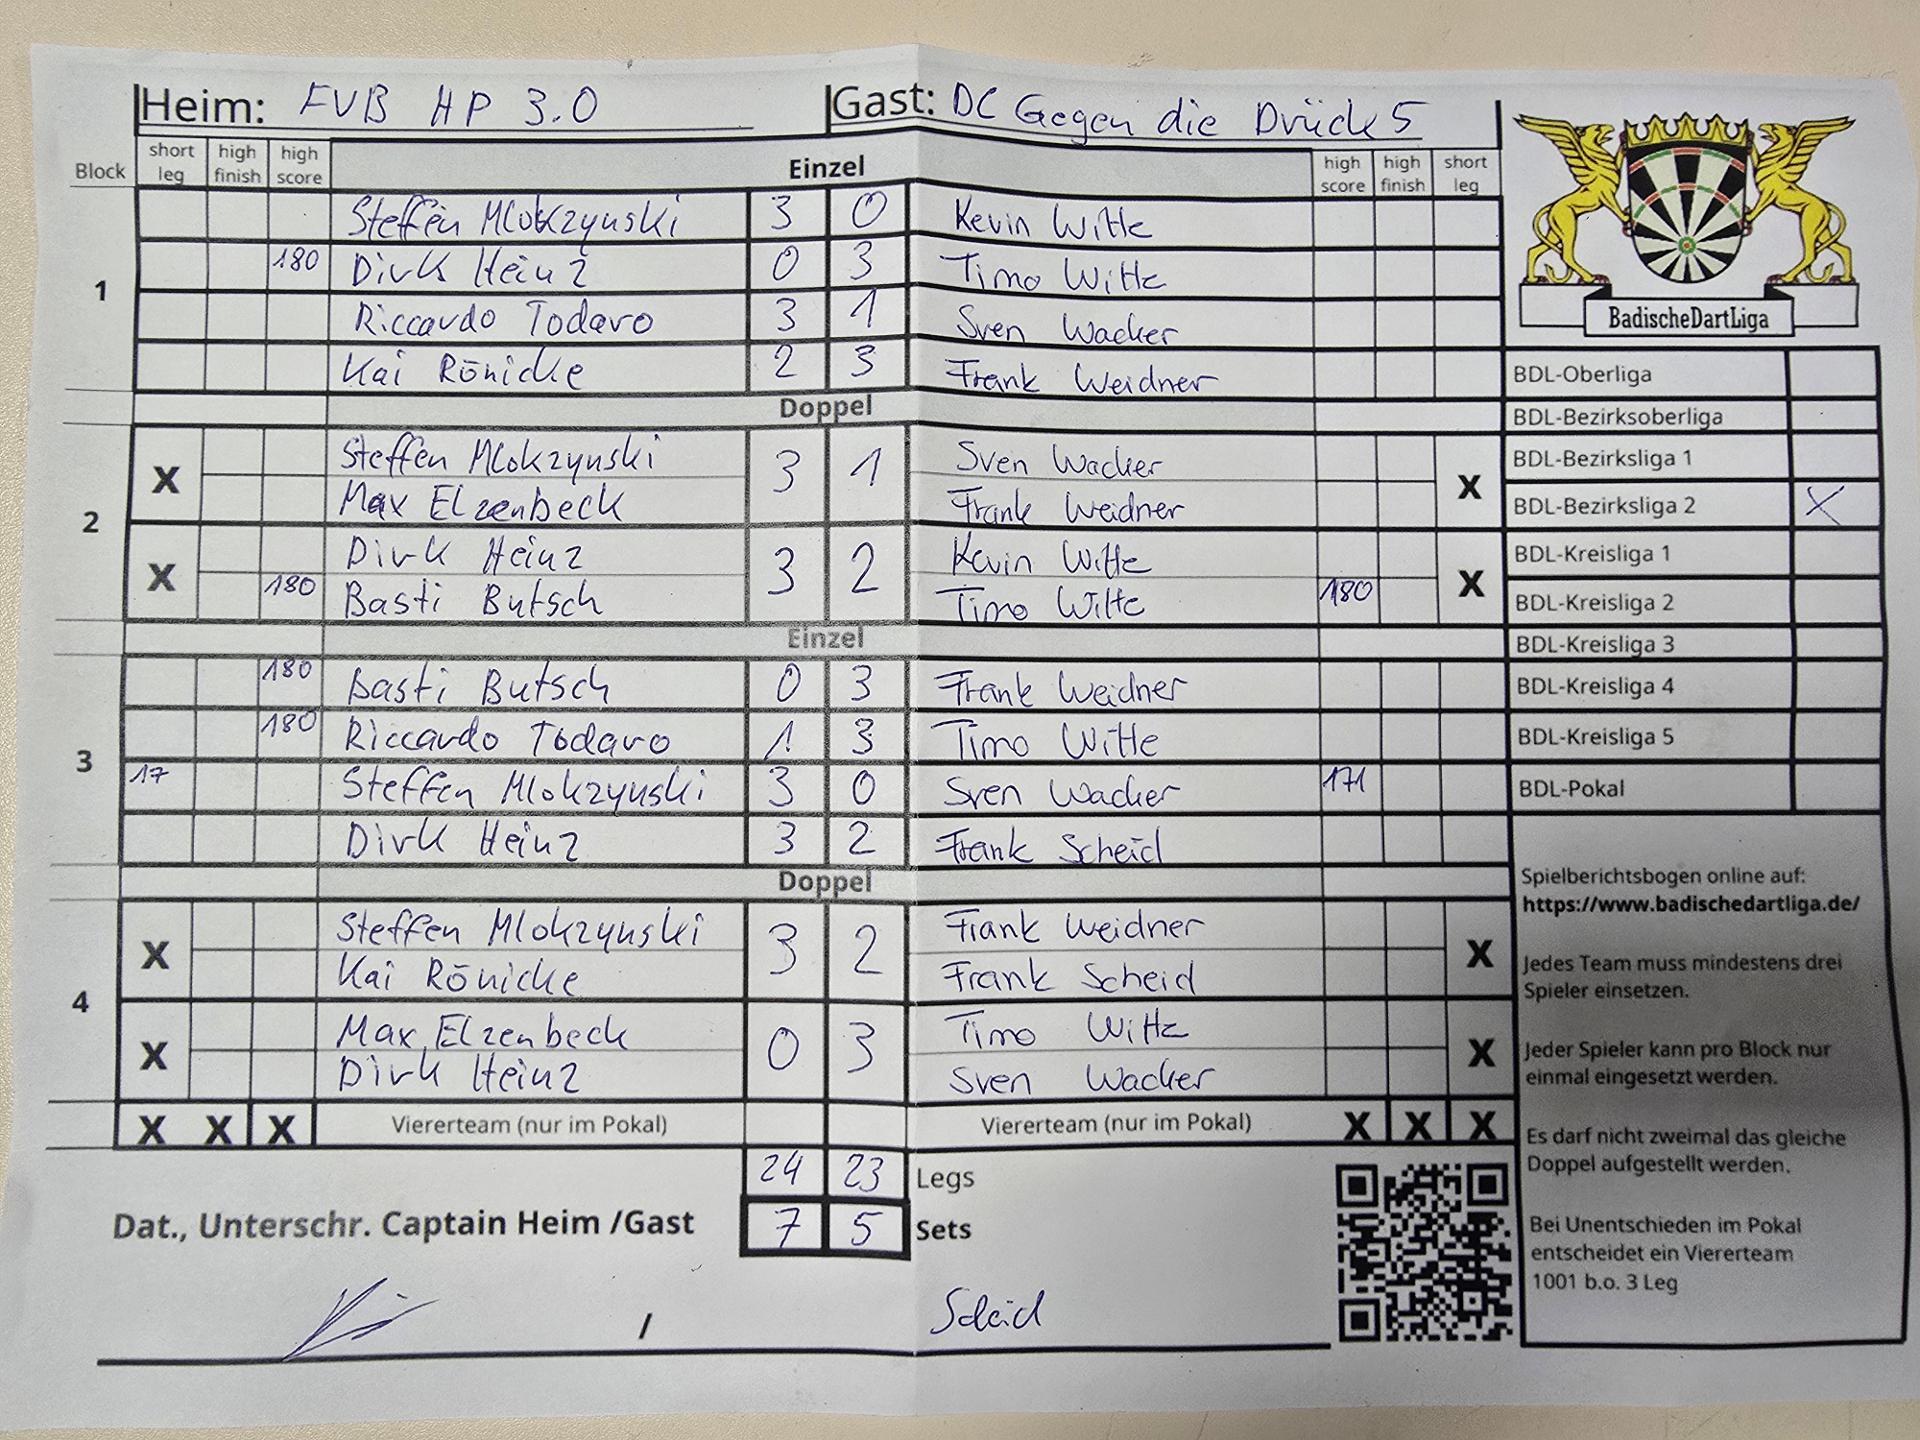 Heim: FVB HP 3.0 Gast: DC Gegen die Drück 5
Block short leg high finish high score Einzel high score high finish short leg
1
Steffen Mlokzynski 3 0 Kevin Witte
180 Dirk Heinz 0 3 Timo Witte
Riccardo Todaro 3 1 Sven Wacker
Kai Rönicke 2 3 Frank Weidner
Doppel
2
X Steffen Mlokzynski 3 1 Sven Wacker X
Max Elzenbeck Frank Weidner
X Dirk Heinz 3 2 Kevin Witte X
180 Basti Butsch Timo Witte 180
Einzel
3
180 Basti Butsch 0 3 Frank Weidner
180 Riccardo Todaro 1 3 Timo Witte
17 Steffen Mlokzynski 3 0 Sven Wacker 171
Dirk Heinz 3 2 Frank Scheid
Doppel
4
X Steffen Mlokzynski 3 2 Frank Weidner X
Kai Rönicke Frank Scheid
X Max Elzenbeck 0 3 Timo Witte X
Dirk Heinz Sven Wacker
X X X Viererteam (nur im Pokal) Viererteam (nur im Pokal) X X X
24 23 Legs
Dat., Unterschr. Captain Heim /Gast 7 5 Sets
/ Scheid
BadischeDartLiga
BDL-Oberliga
BDL-Bezirksoberliga
BDL-Bezirksliga 1
BDL-Bezirksliga 2 X
BDL-Kreisliga 1
BDL-Kreisliga 2
BDL-Kreisliga 3
BDL-Kreisliga 4
BDL-Kreisliga 5
BDL-Pokal
Spielberichtsbogen online auf:
https://www.badischedartliga.de/
Jedes Team muss mindestens drei
Spieler einsetzen.
Jeder Spieler kann pro Block nur
einmal eingesetzt werden.
Es darf nicht zweimal das gleiche
Doppel aufgestellt werden.
Bei Unentschieden im Pokal
entscheidet ein Viererteam
1001 b.o. 3 Leg